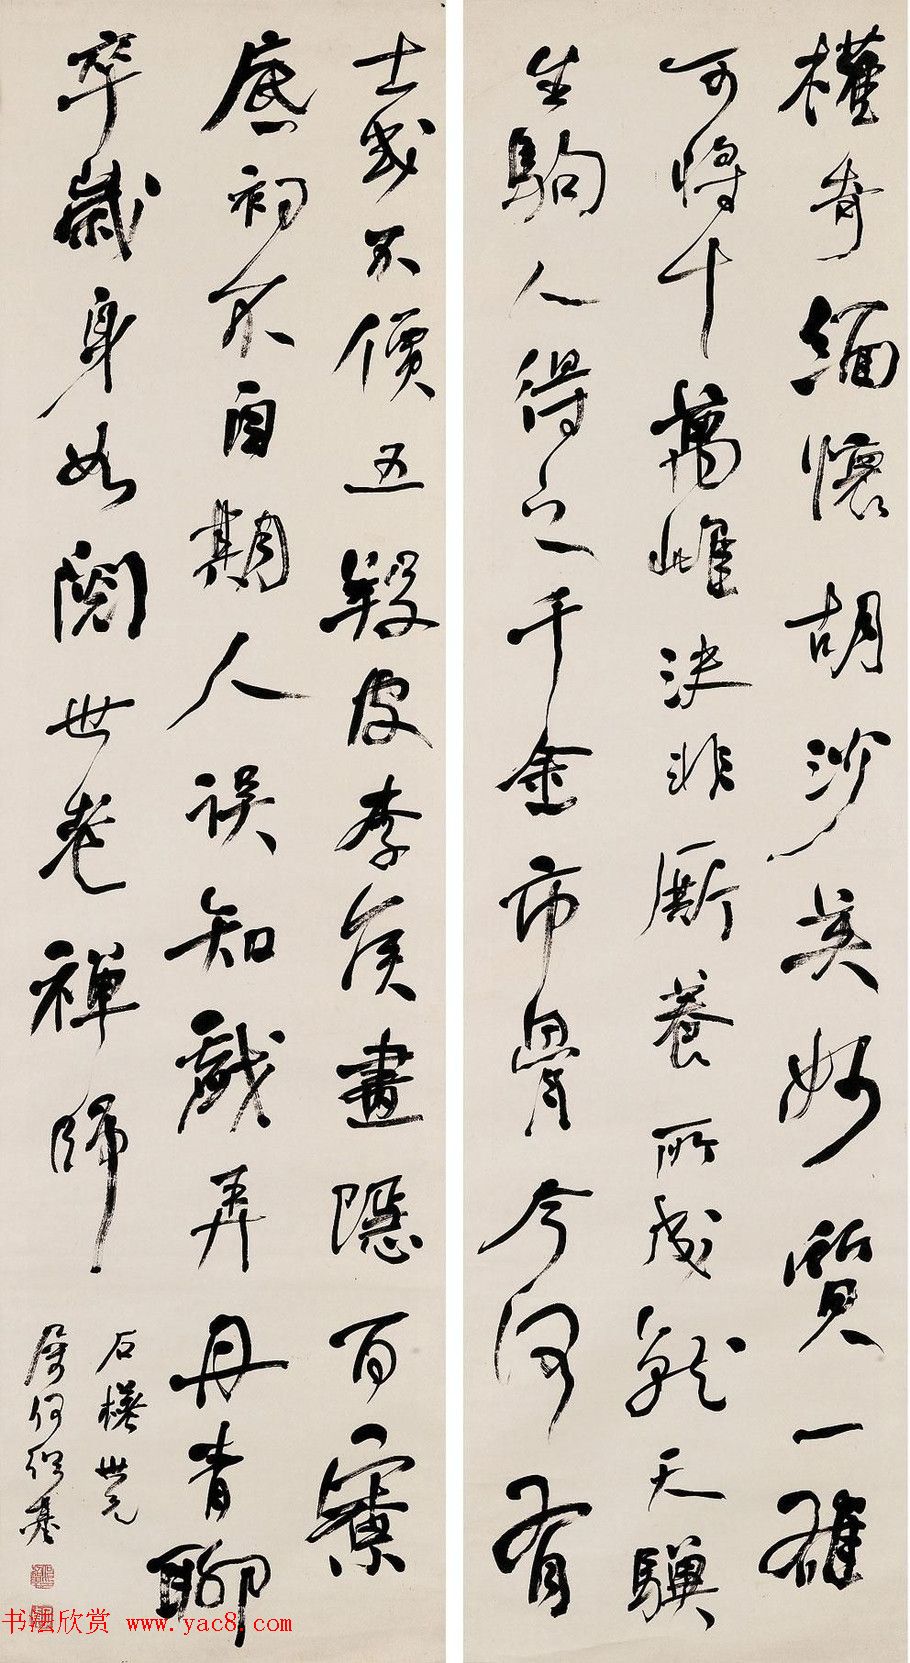 權奇緬懷胡沙英妙質一雄
可將十萬雌決非廝養所成就天驥
生駒人得之千金市骨今何有
士或不價五羖皮李侯畫隱百寮
底初不自期人誤知戲弄丹青聊
卒歲身如閱世老禪師
石樵世兄
屬何紹基
书法欣赏 www.yac8.com